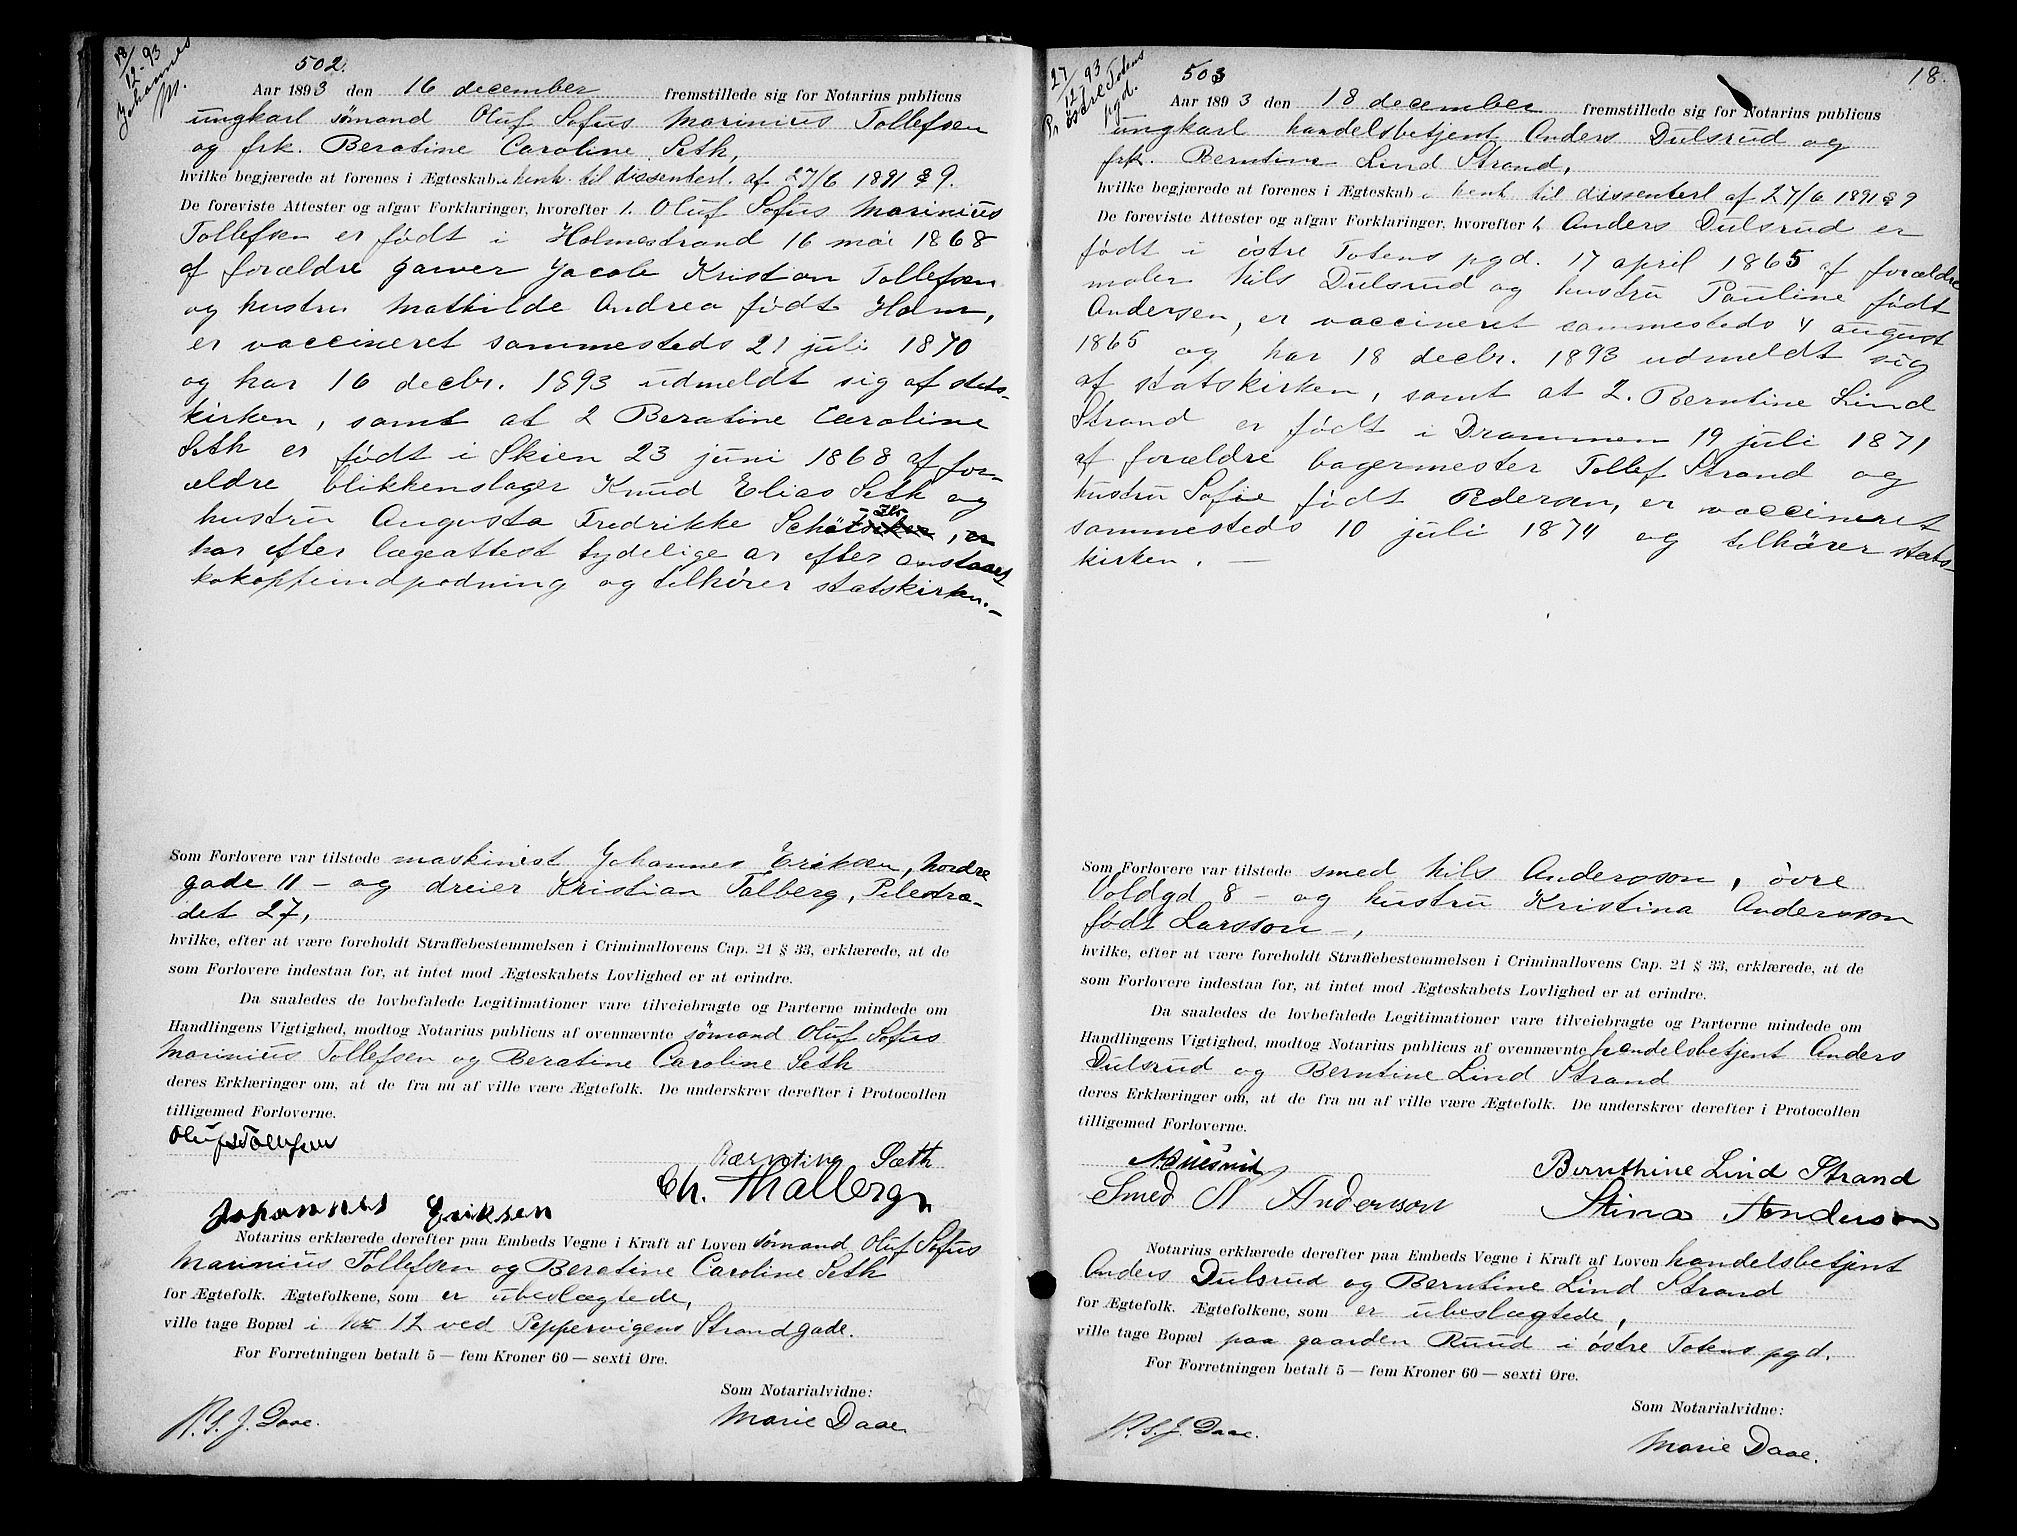 18/12-93
Johannes
M.
502.
Aar 1893 den 16 december fremstillede sig for Notarius publicus
ungkarl sömand Oluf Sofus Marinius Tollefsen
og frk. Beratine Caroline Seth,
hvilke begjærede at forenes i Ægteskab i henh. til dissenterl. af 27/6 1891 § 9.
De foreviste Attester og afgav Forklaringer, hvorefter 1. Oluf Sofus Marinius
Tollefsen er født i Holmestrand 16 mai 1868
af forældre garver Jacob Kristian Tollefsen
og hustru Mathilde Andrea født Holm,
er vaccineret sammesteds 21 juli 1870
og har 16 decbr. 1893 udmeldt sig af stats-
kirken, samt at 2 Beratine Caroline
Seth er født i Skien 23 juni 1868 af for-
ældre blikkenslager Knud Elias Seth og
hustru Augusta Fredrikke
har efter lægeattest tydelige ar efter anstaaet
kokoppeindpodning og tilhører statskirken. –
Som Forlovere var tilstede maskinist Johannes Eriksen, Nordre
gade 11 – og dreier Kristian Talberg, Pilestræ-
det 27,
hvilke, efter at være foreholdt Straffebestemmelsen i Criminallovens Cap. 21 § 33, erklærede, at de
som Forlovere indestaa for, at intet mod Ægteskabets Lovlighed er at erindre.
Da saaledes de lovbefalede Legitimationer vare tilveiebragte og Parterne mindede om
Handlingens Vigtighed, modtog Notarius publicus af ovennævnte sömand Oluf Sofus
Marinius Tollefsen og Beratine Caroline Seth
deres Erklæringer om, at de fra nu af ville være Ægtefolk. De underskrev derefter i Protocollen
tilligemed Forloverne.
Oluf S Tollefsen
Bærntine Sæth
Ch. Thalberg
Johannes Eriksen
Notarius erklærede derefter paa Embeds Vegne i Kraft af Loven sömand Oluf Sofus
Marinius Tollefsen og Beratine Caroline Seth
for Ægtefolk. Ægtefolkene, som er ubeslægtede,
ville tage Bopæl i No 12 ved Peppervigens Strandgade.
For Forretningen betalt 5 — fem Kroner 60 — sexti Øre.
Som Notarialvidne:
N. S. J. Daae.
Marie Daae.
27/12 93
Pr östre Totens
pgd.
503
18.
Aar 1893 den 18 december fremstillede sig for Notarius publicus
ungkarl handelsbetjent Anders Dulsrud og
frk. Berntine Lind Strand,
hvilke begjærede at forenes i Ægteskab i henh til dissenterl af 27/6 1891 § 9
De foreviste Attester og afgav Forklaringer, hvorefter 1, Anders Dulsrud er
født i östre Totens pgd. 17 april 1865 af forældre
maler Nils Dulsrud og hustru Pauline født
Andersen, er vaccineret sammesteds 4 august
1865 og har 18 decbr. 1893 udmeldt sig
af statskirken, samt at 2. Berntine Lind
Strand er født i Drammen 19 juli 1871,
af forældre bagermester Tollef Strand og
hustru Sofie født Pedersen, er vaccineret
sammesteds 10 juli 1874 og tilhører stats-
kirken. —
Som Forlovere var tilstede smed Nils Andersson, övre
Voldgd 8 – og hustru Kristina Andersson
født Larsson –,
hvilke, efter at være foreholdt Straffebestemmelsen i Criminallovens Cap. 21 § 33, erklærede, at de
som Forlovere indestaa for, at intet mod Ægteskabets Lovlighed er at erindre.
Da saaledes de lovbefalede Legitimationer vare tilveiebragte og Parterne mindede om
Handlingens Vigtighed, modtog Notarius publicus af ovennævnte handelsbetjent Anders
Dulsrud og Berntine Lind Strand
deres Erklæringer om, at de fra nu af ville være Ægtefolk. De underskrev derefter i Protocollen
tilligemed Forloverne.
Bernthine Lind Strand
Smed N Andersson
Stina Anderson
Notarius erklærede derefter paa Embeds Vegne i Kraft af Loven handelsbetjent
Anders Dulsrud og Berntine Lind Strand
for Ægtefolk. Ægtefolkene, som er ubeslægtede,
ville tage Bopæl paa gaarden Ruud i östre Totens pgd.
For Forretningen betalt 5 — fem Kroner 60 — sexti Øre.
Som Notarialvidne:
N. S. J. Daae.
Marie Daae.